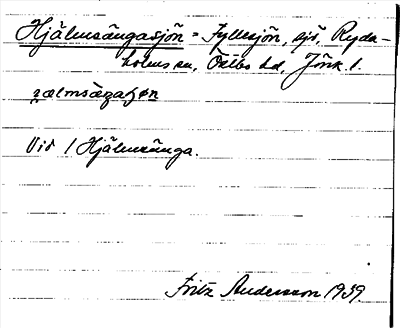 Hjälmsängasjön = Fyllesjön, sjö, Ryda-
holms sn, Östbo hd, Jönk. l.
Vid 1 Hjälmsänga.
Fritz Andersson 1939